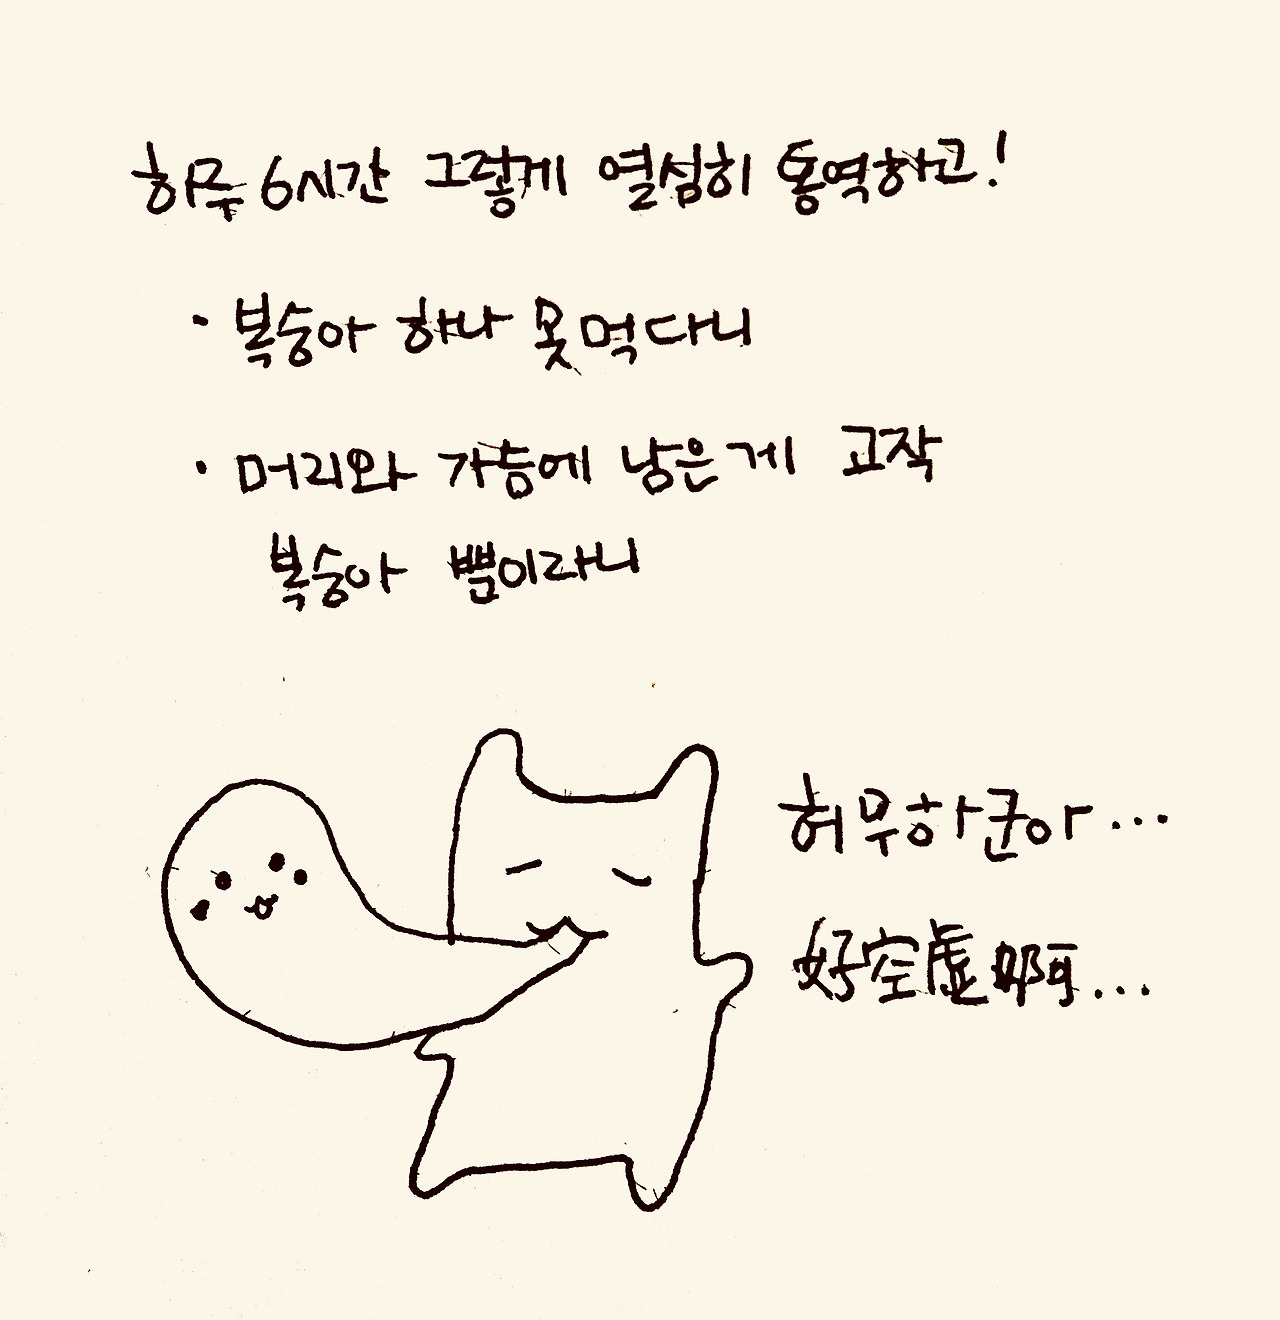 하루 6시간 그렇게 열심히 통역하고!
· 복숭아 하나 못 먹다니
· 머리와 가슴에 남은 게 고작
복숭아 뿐이라니
허무하군아...
好空虛啊...